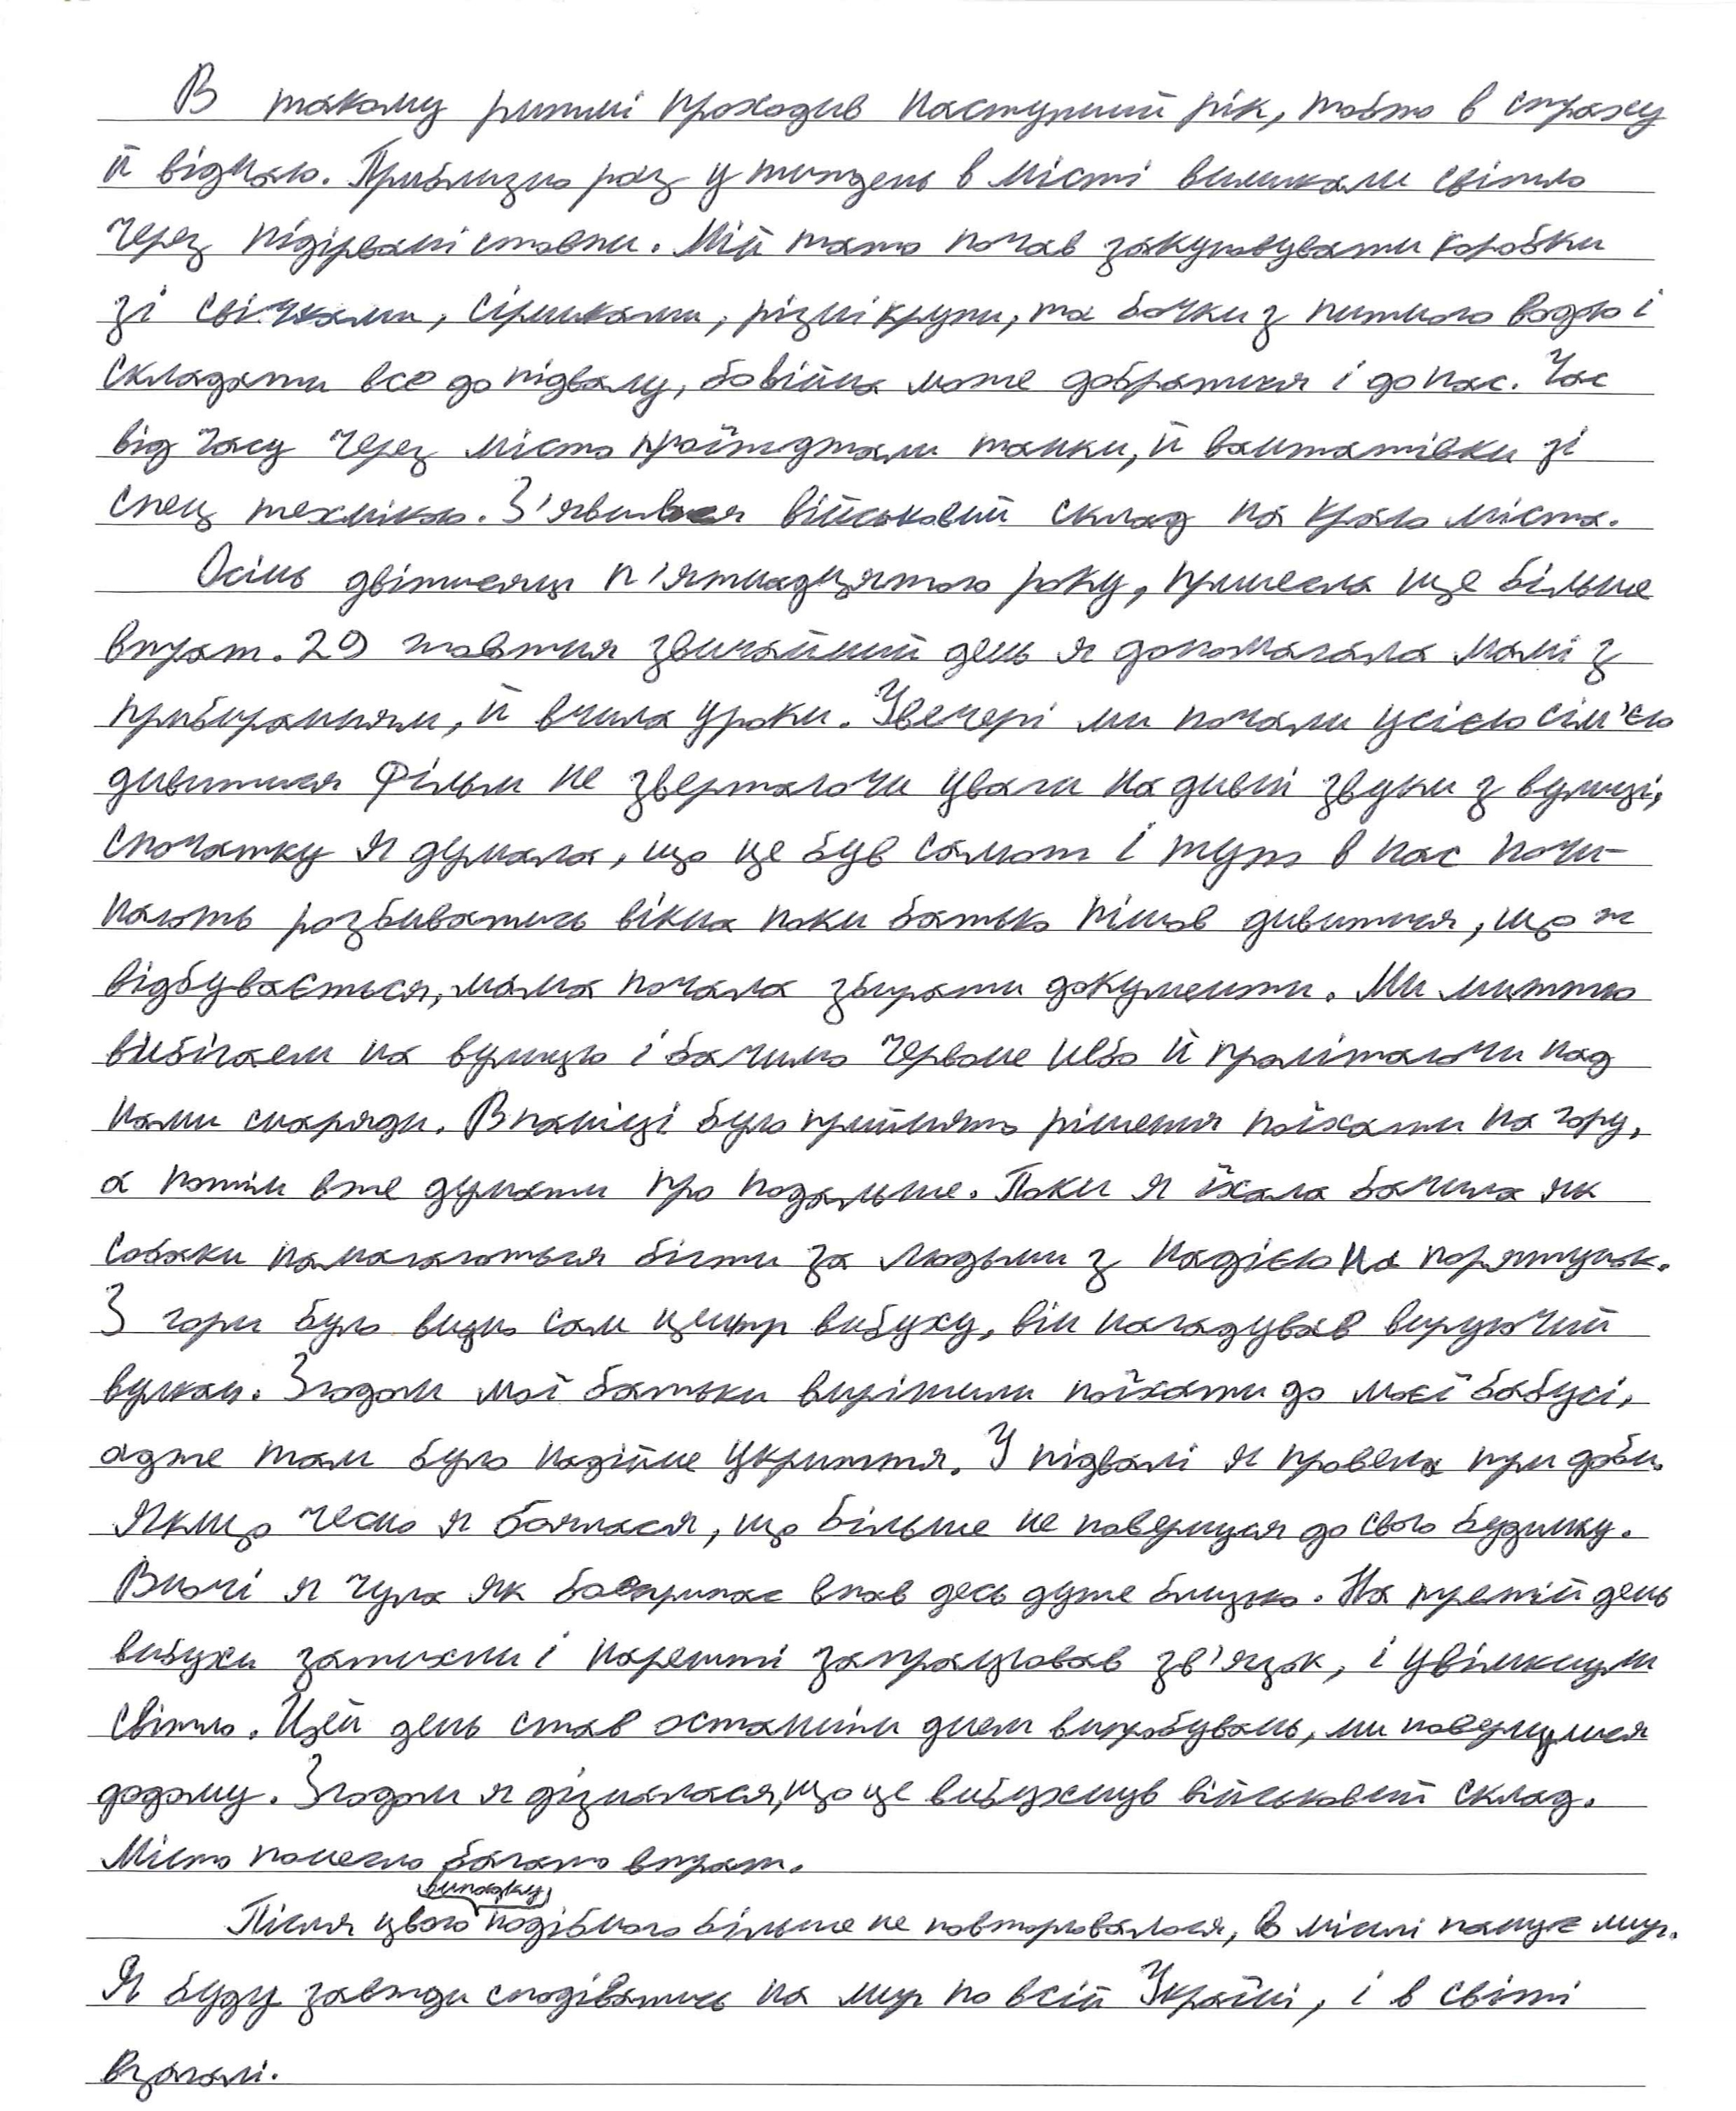 В такому ритмі проходив наступний рік, тобто в страху
й відчаю. Приблизно раз у тиждень в місті вимикали світло
через підірвані стовпи. Мій тато почав закуповувати коробки
зі свічками, сірниками, різні крупи, та бочки з питною водою і
складати все до підвалу, бо війна може добратися і до нас. Час
від часу через місто проїжджали танки, й вантажівки зі
спец технікою. З'явився військовий склад на краю міста.
Осінь двітисячі п'ятнадцятого року, принесла ще більше
втрат. 29 жовтня звичайний день я допомагала мамі з
прибиранням, й вчила уроки. Увечері ми почали усією сім'єю
дивитися фільм не звертаючи уваги на дивні звуки з вулиці,
спочатку я думала, що це був салют і тут в нас почи-
нають розбиватись вікна поки батько пішов дивитися, що ж
відбувається, мама почала збирати документи. Ми миттю
вибігаєм на вулицю і бачимо червоне небо й пролітаючи над
нами снаряди. В паніці було прийнято рішення поїхати на гору,
а потім вже думати про подальше. Поки я їхала бачила як
собаки намагаються бігти за людьми з надією на порятунок.
З гори було видно сам центр вибуху, він нагадував вируючий
вулкан. Згодом мої батьки вирішили поїхати до моєї бабусі,
адже там було надійне укриття. У підвалі я провела три доби.
Якщо чесно я боялася, що більше не повернуся до свого будинку.
Вночі я чула як боєприпас впав десь дуже близько. На третій день
вибухи затихли і нарешті запрацював зв'язок, і увімкнули
світло. Цей день став останнім днем випробувань, ми повернулися
додому. Згодом я дізналася, що це вибухнув військовий склад.
Місто понесло багато втрат.
випадку
Після цього подібного більше не повторювалося, в місті панує мир.
Я буду завжди сподіватись на мир по всій Україні, і в світі
взагалі.